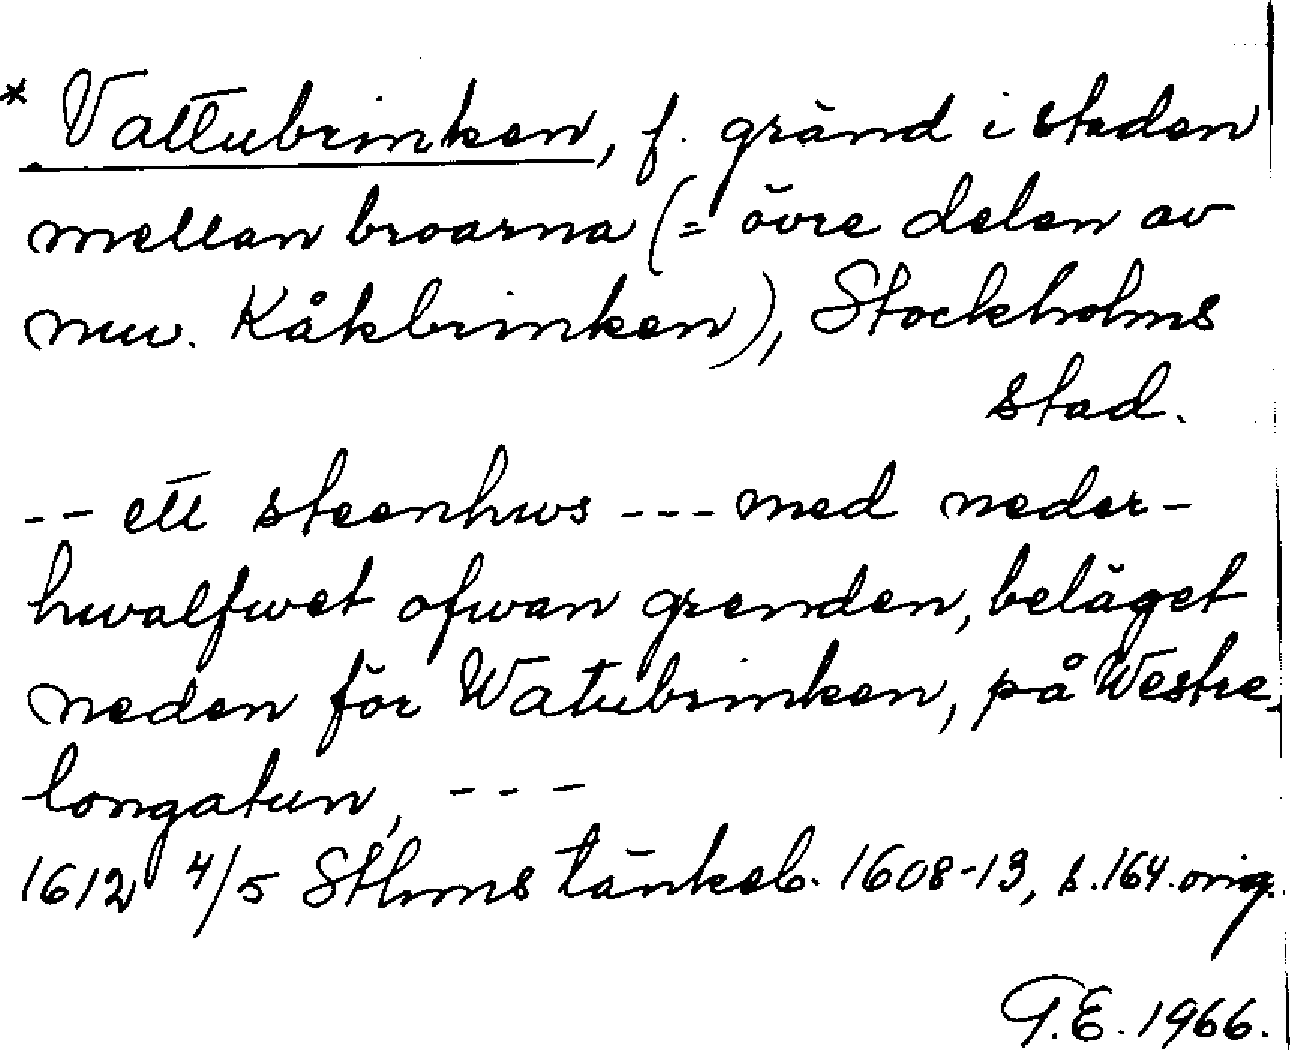 * Vattubrinken, f. gränd i staden
mellan broarna (= övre delen av
nuv. Kåkbrinken), Stockholms
stad.
-- ett steenhws --- med neder-
hwalfwet ofwan grenden, beläget
neden för Watubrinken, på Westre-
longatun, ---
1612 4/5 Sthms tänkeb. 1608-13, s. 164. orig.
G.E. 1966.